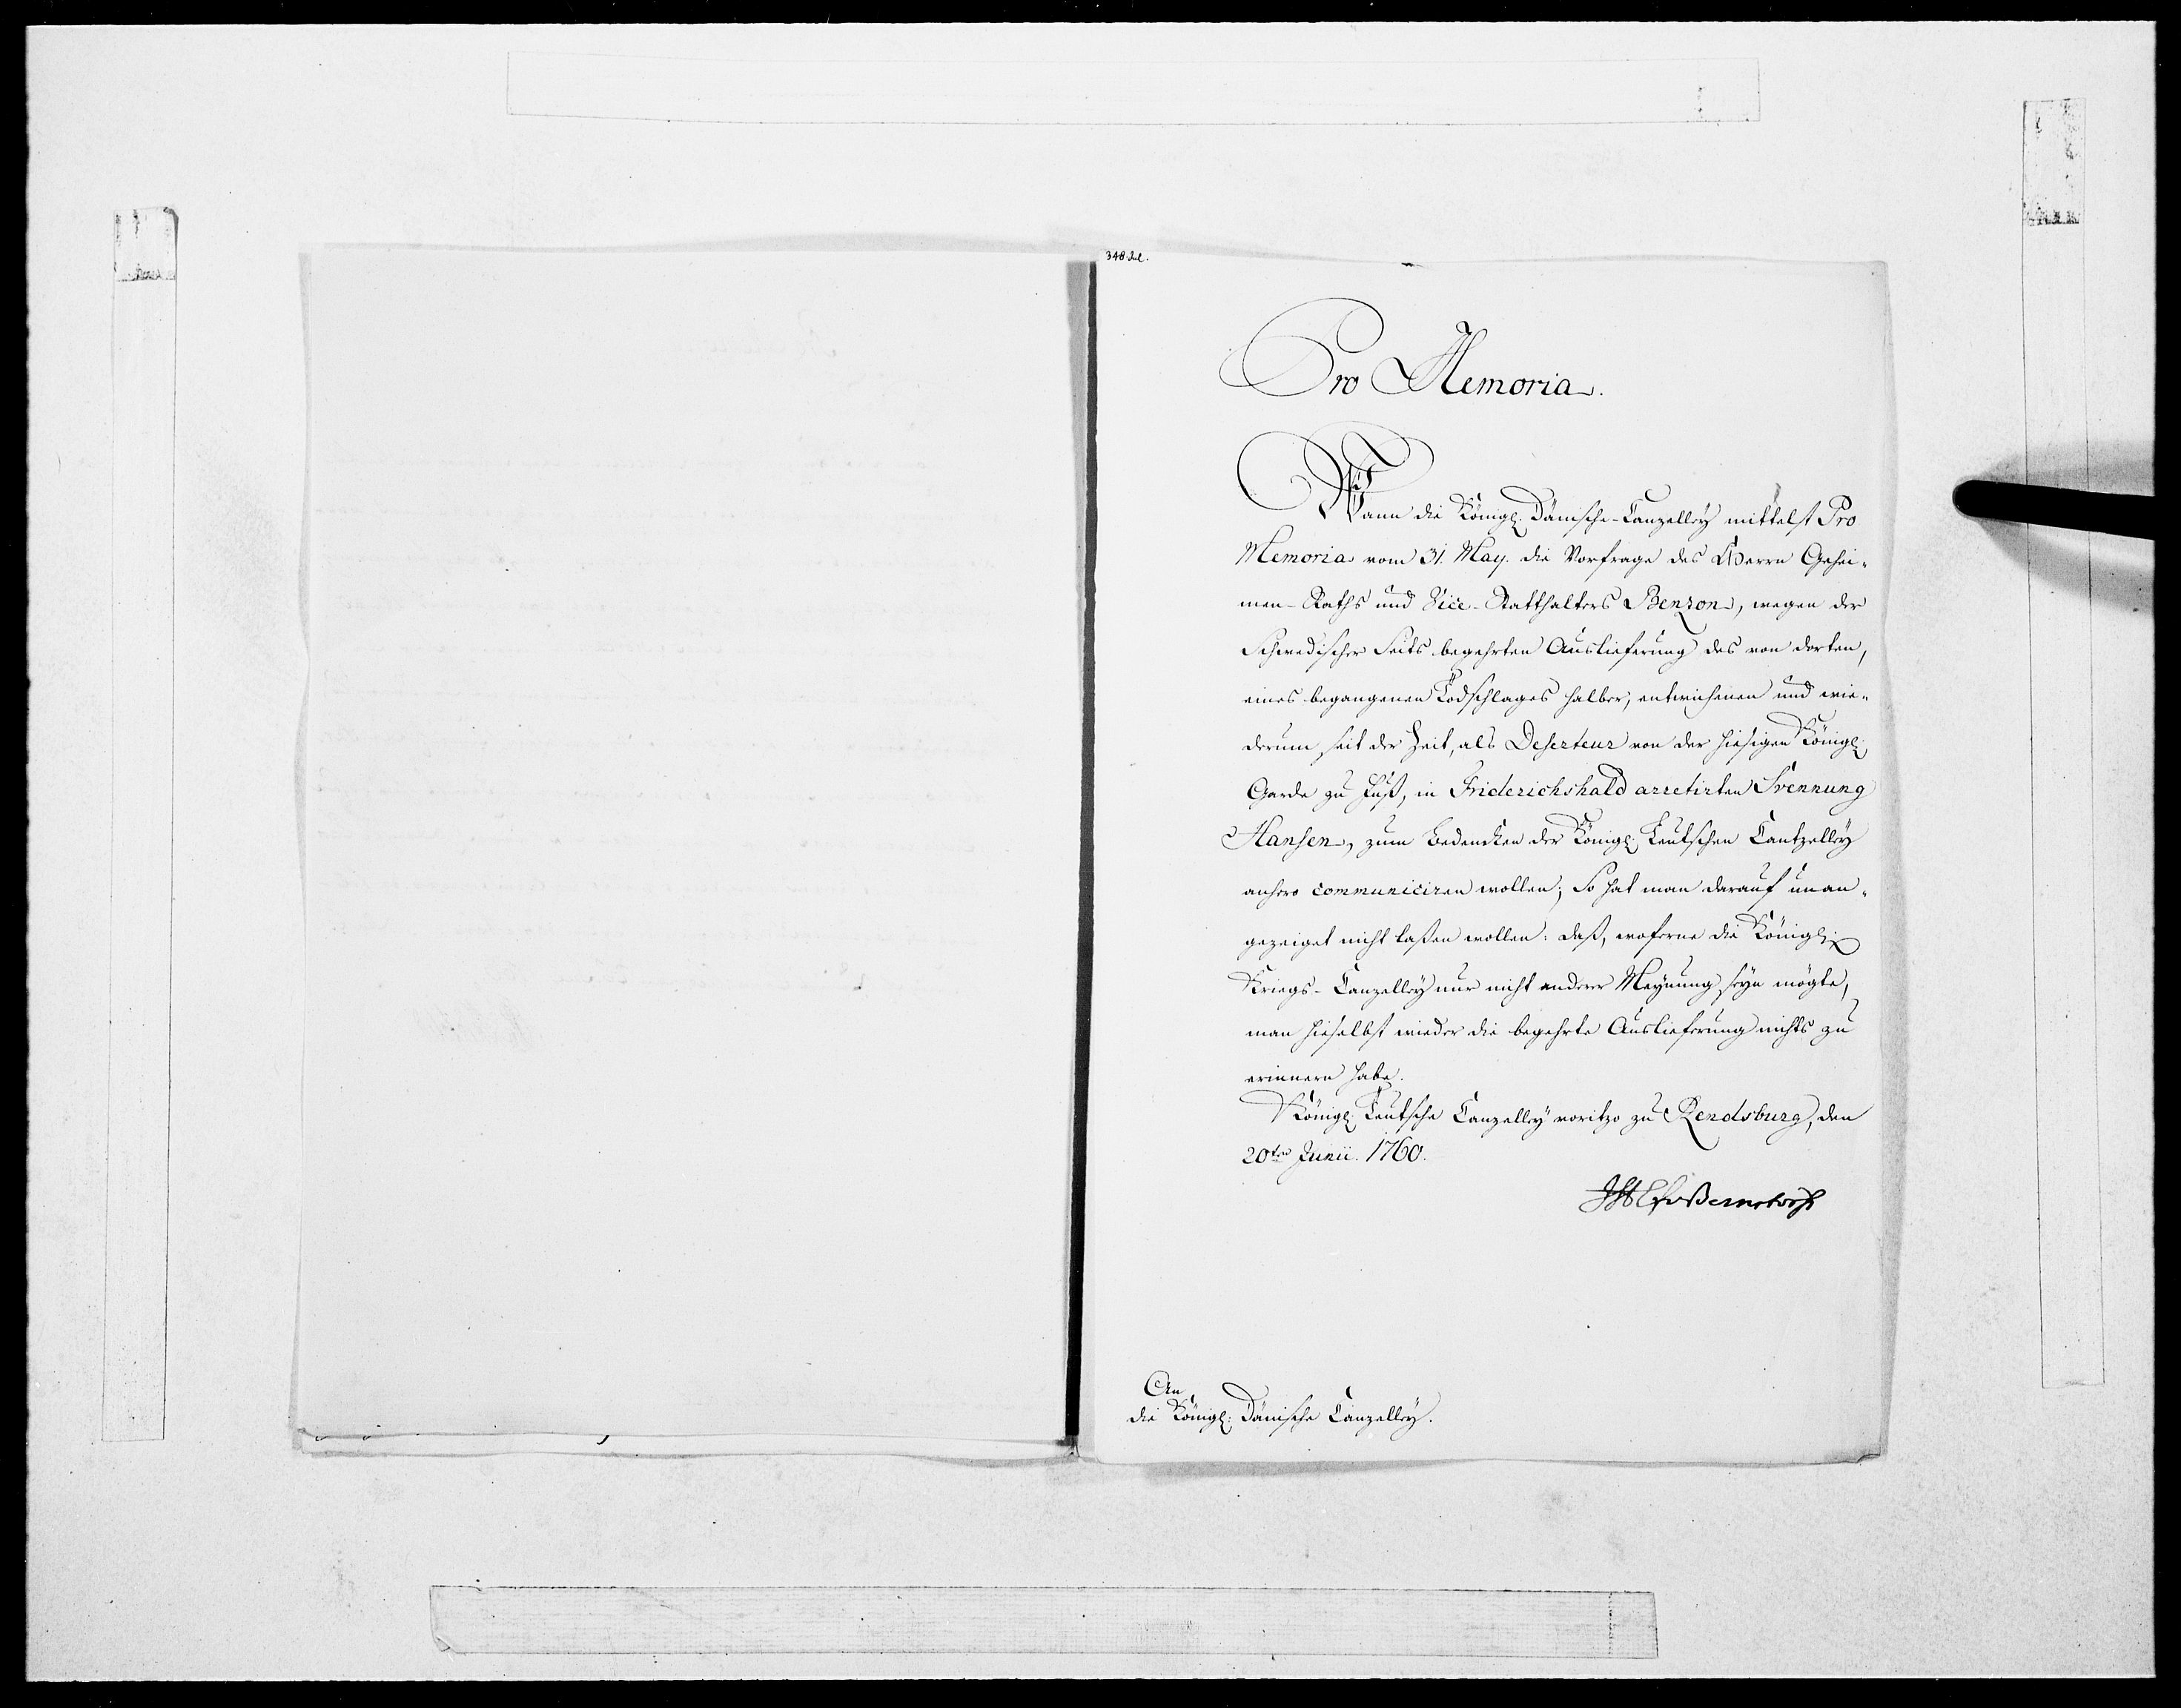 Pro Memoria.
Wann die Königl. Dänische-Canzelley mittelst Pro
Memoria vom 31. May. die Vorfrage des Herrn Gehei-
men-Raths und Vice-Statthalters Benzon, wegen der
Schwedischer Seits begehrten Auslieferung des von dorten,
eines begangenen Todschlages halber, entwichenen und wie-
derum seit der Zeit, als Deserteur von der hiesigen Königl.
Garde zu Fuß, in Friderichshald arretirten Svennung
Hansen, zum Bedencken der Königl. Teutschen Cantzelley
anhero communiciren wollen; So hat man darauf unan-
gezeiget nicht laßen wollen: daß, woferne die Königl.
Kriegs-Canzelley nur nicht anderer Meynung seyn mögte,
man hieselbst wieder die begehrte Auslieferung nichts zu
erinnern habe.
Königl. Teutsche Canzelley voritzo zu Rendsburg, den
20ten Junii. 1760.
JHEfvBernstorff
An
die Königl. Dänische Canzelley.